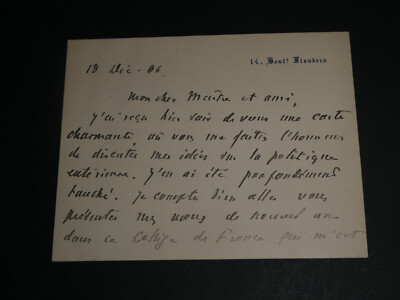 14, Boulᵈ Flandrin
18 Déc. 06
Mon cher Maître et ami,
j'ai reçu hier soir de vous une carte
charmante où vous me faites l'honneur
de discuter mes idées sur la politique
extérieure. J'en ai été profondément
touché. Je compte bien aller vous
présenter mes vœux de nouvel an
dans ce Collège de France qui m'est